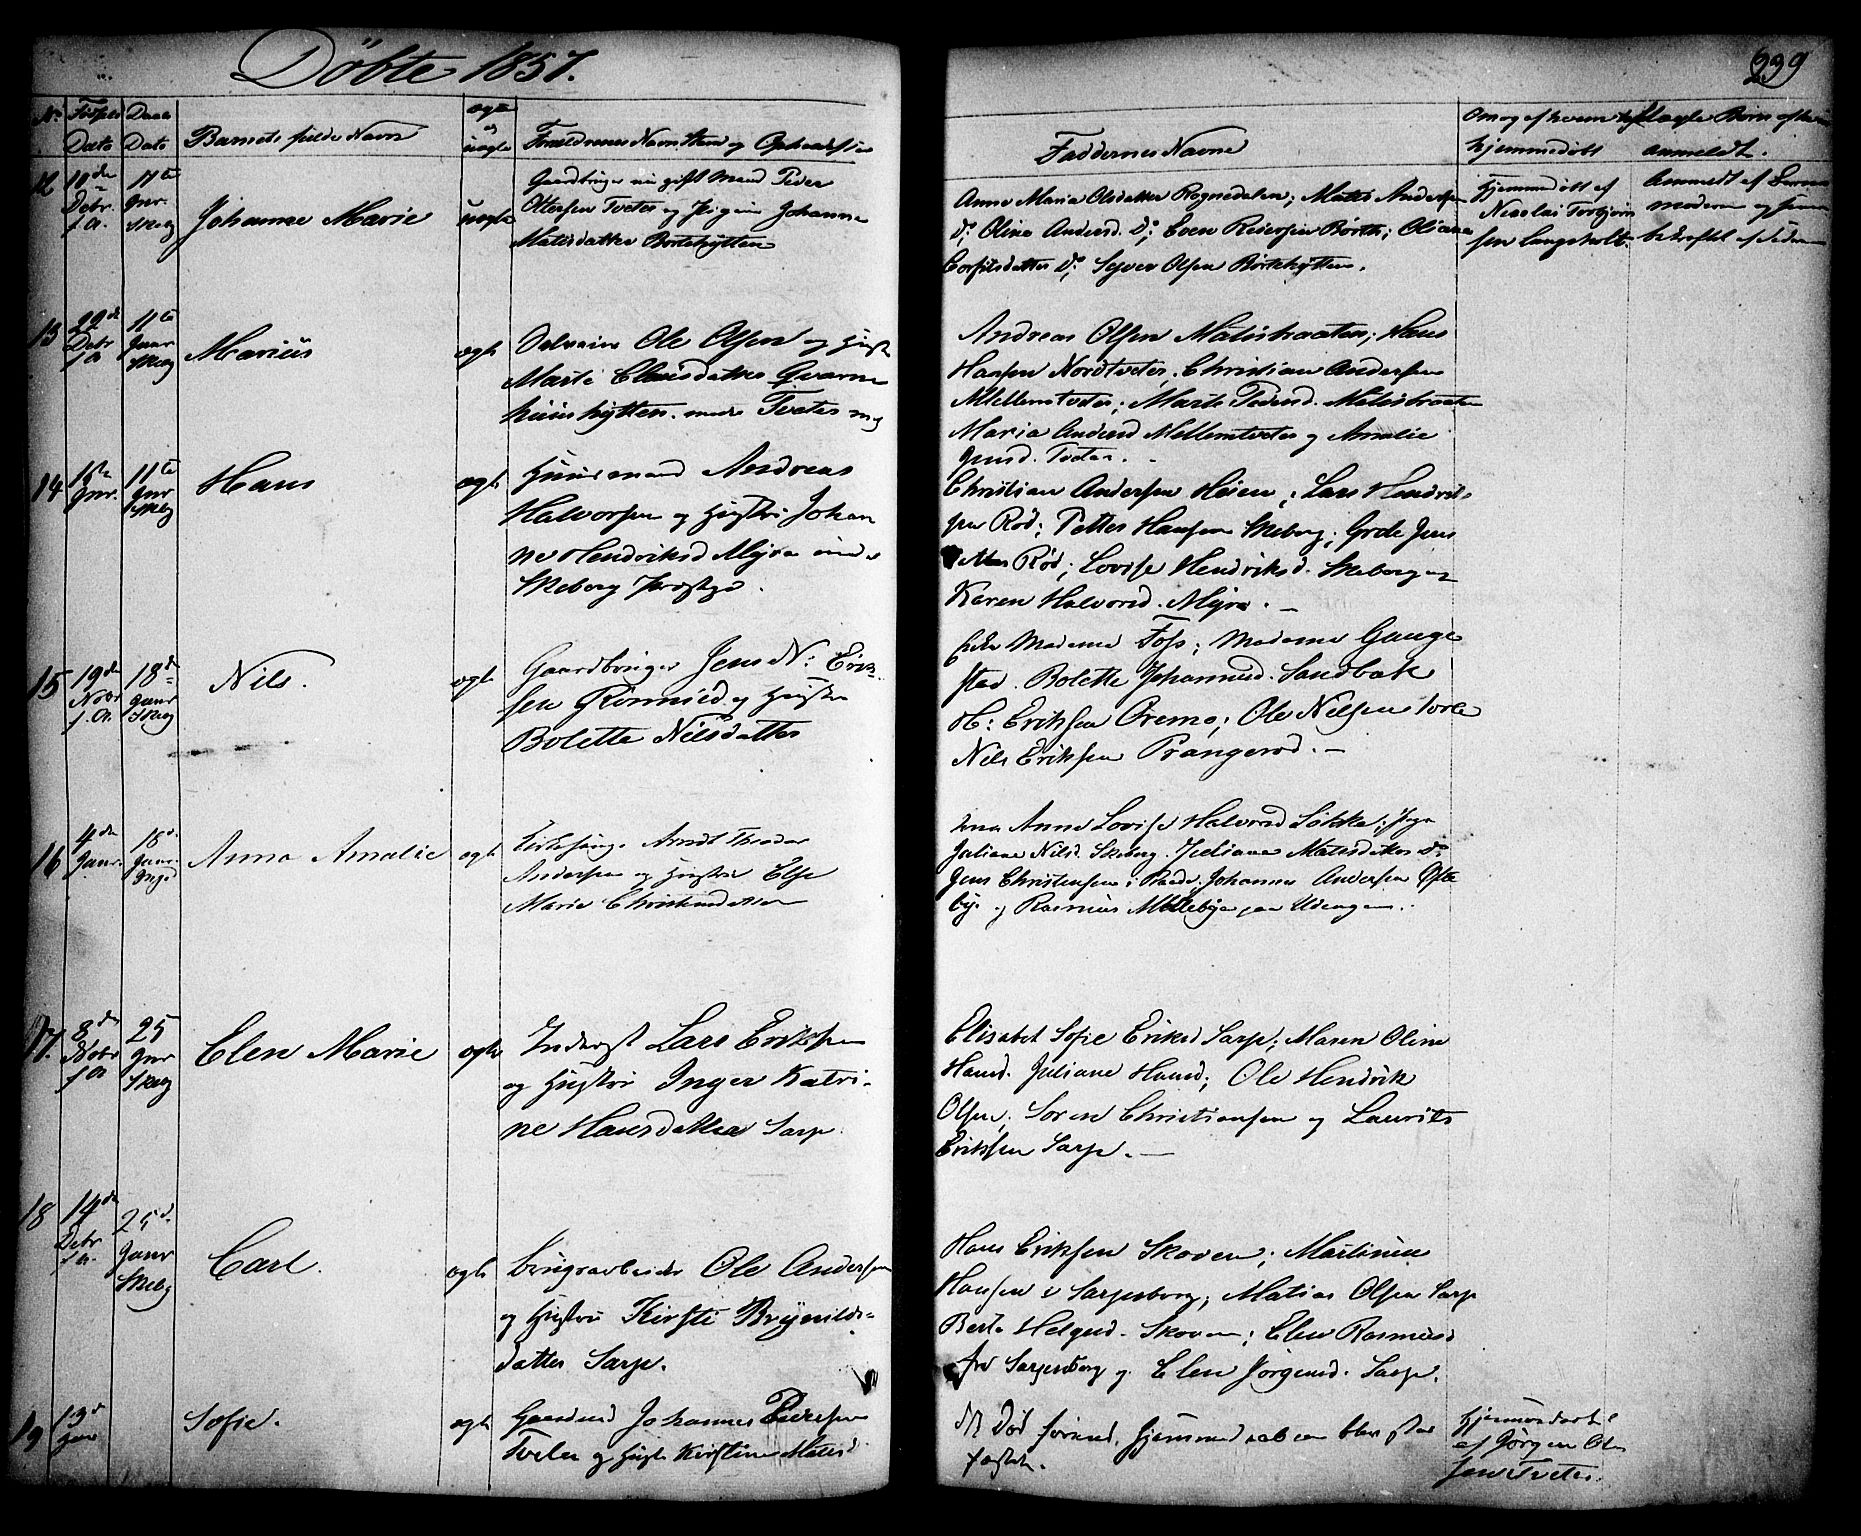 Døbte 1857.
239
No Fødsels Dato Daabs Dato Barnets fulde Navn ægte og uægte Forældrenes Navn Stand og Opholdssted
Faddernes Navne
hjemmedøbt
anmeldt.
12 10de Debr f.A. 11te Jnr Skebg Johanne Marie uægte
Gaardbruger gift Mand Peder
Ottersen Tveter og Pigen Johanne
Matisdatter Børtehytten
Anne Maria Olsdatter Rognedalen; Matis Andersen
Do; Oline Andersd. Do; Even Reiersen Børte; Oliana
Do; Syver Olsen Børtehytten.
Hjemmedøbt af
Nicolai Torbjørn
sen Langsholt.
Anmeldt af Barne
moderen og
bekræftet af Faderen
13 22de Debr f.A. 11te Janr Skebg Marius ægte
Ole Olsen og Hustru
Marte Clausdatter Qvarne
huushytten. Tveter
Andreas Olsen Matistraaten; Hans
Hansen Nordtveter. Christian Andersen
Mellemtveter; Marte Pedersd. Matistraaten
Maria Andersd Mellemtveter og Amalie
Jensd. Tveter.
14 1ste Jnr. 11te Jnr Skebg Hans ægte
Huusmand Andreas
Halvorsen og Hustru Johan
ne Hendriksd Myra under
Skeberg Præstegd.
Christian Andersen Heien; Lars Hendrik
sen Rød; Petter Hansen Skeberg; Grete Jens
datter Rød; Lovise Hendriksd. Skeberg og
Karen Halvorsd. Myra. —
15 19de Nobr f.A. 18de Janr Skebg Nils. ægte
Gaardbruger Jens N: Erik
sen Grønnsid og Hustru
Bolette Nilsdatter
Madame Foss; Madame Gauge
stad. Bolette Johannesd. Sandbak
H: Eriksen Oremo; Ole Nilsen
Nils Eriksen Prangerød. —
16 4de Janr. 18de Janr. Anna Amalie ægte
Arndt Theodor
Andersen og Hustru Else
Marie Christensdatter
Anne Lovise Halvorsd Løkke; Pige
Juliane Nilsd. Skeberg. Juliane Matisdatter Do
Jens Christensen i Raade. Johannes Andersen Øste
by og Rasmus Mellebye paa Udengen.
17. 8de Nobr f.A. 25 Jnr Skebg Elen Marie ægte
Inderst Lars Eriksen
og Hustru Inger Katri-
ne Hansdatter Sarp.
Elisabet Sofie Eriksd Sarp; Maren Oline
Hansd. Juliane Hansd; Ole Hendrik
Olsen; Søren Christiansen og Laurits
Eriksen Sarp. —
18 14de Debr f.A. 25de Janr Skebg Carl. ægte
Brugsarbeider Ole Andersen
og Hustru Kirsti Brynilds-
datter Sarp.
Hans Eriksen Skoven; Martinus
Hansen i Sarpsborg; Matias Olsen Sarp
Berte Helgesd. Skoven; Elen Rasmusd
fra Sarpsborg og Elen Jørgensd. Sarp.
19 13de Jnr Sofie. ægte
Gaardmd Johannes Pedersen
Tveter og Hust. Kirstine Matisd
NB Død førend Hjemmedaaben blev stad
fæstet.
Hjemmedøbt
af Jørgen Ol
sen Tveter.